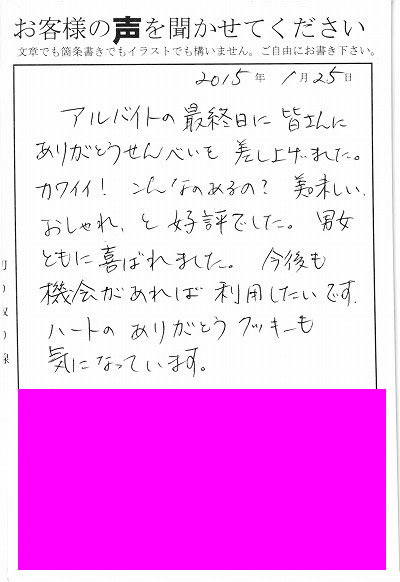 お客様の声を聞かせてください
文章でも箇条書きでもイラストでも構いません。ご自由にお書き下さい。
2015年 1月25日
アルバイトの最終日に皆さんに
ありがとうせんべいを差し上げました。
カワイイ! こんなのあるの? 美味しい、
おしゃれ、と好評でした。男女
ともに喜ばれました。今後も
機会があれば利用したいです。
ハートのありがとうクッキーも
気になっています。